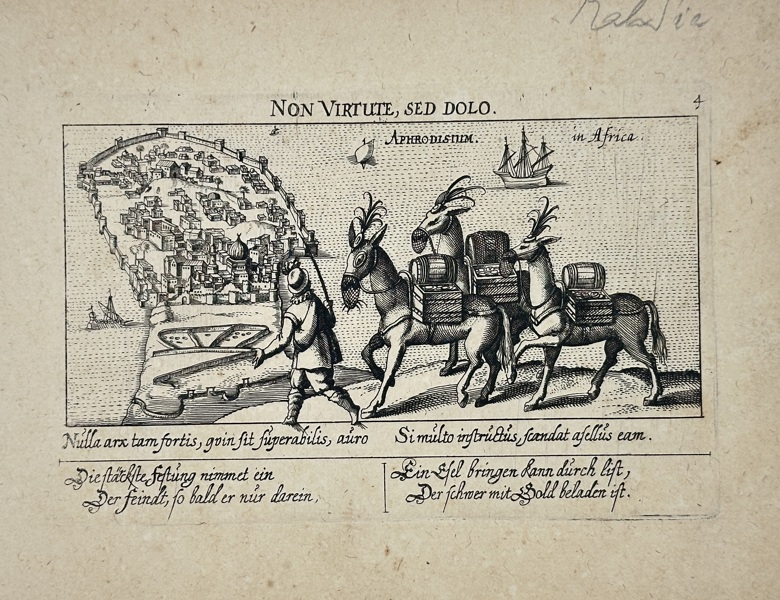 NON VIRTUTE, SED DOLO.
4
APHRODISIUM. in Africa.
Nulla arx tam fortis, qvin sit superabilis, auro
Si multo instructus, scandat asellus eam.
Die stärckste Festung nimmet ein
Der feindt, so bald er nur darein,
Ein Esel bringen kann durch list,
Der schwer mit Gold beladen ist.